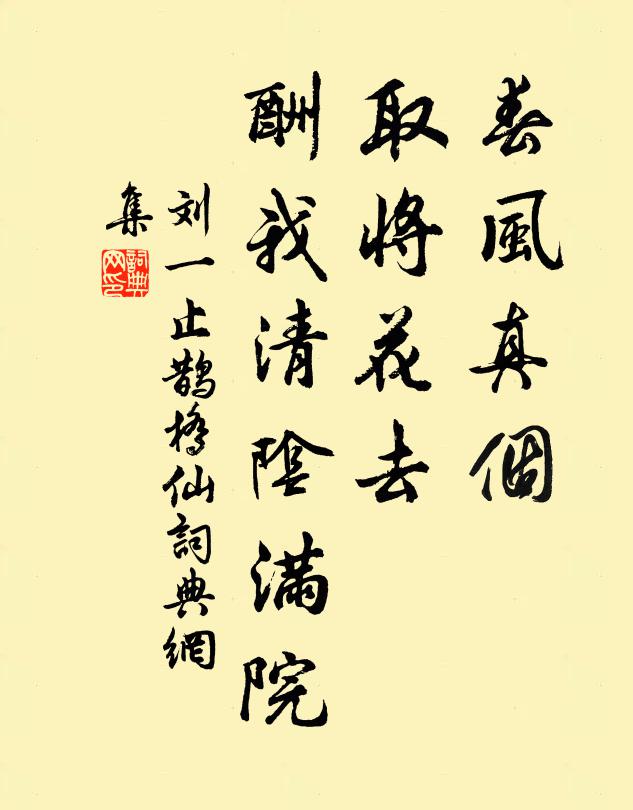 春風真個
取將花去
酬我清陰滿院
刘一止鵲橋仙詞典網
集
詞典網印